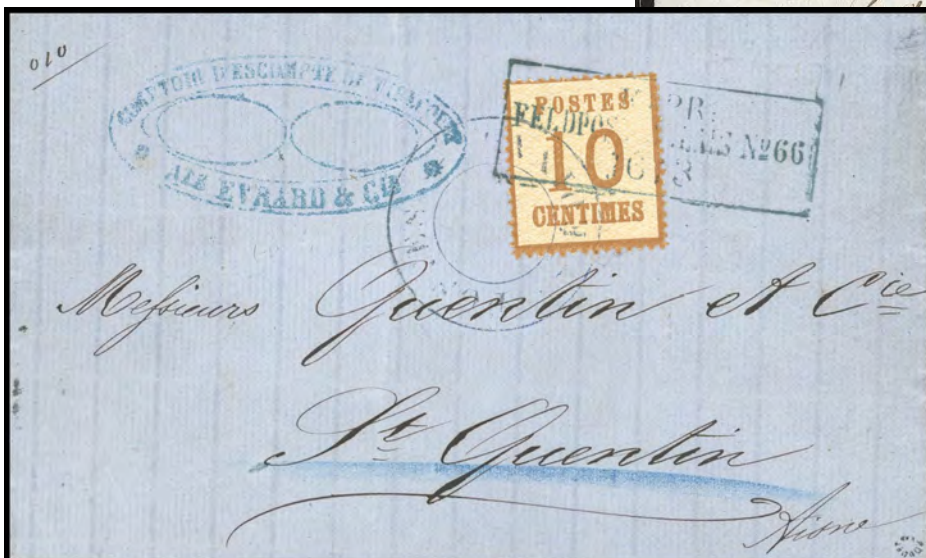 COMPTOIR D'ESCOMPTE DE
EVRARD & CIE
POSTES
10
CENTIMES
FELDPOS
Nº66
Messieurs Quentin et Cie
St Quentin
Aisne